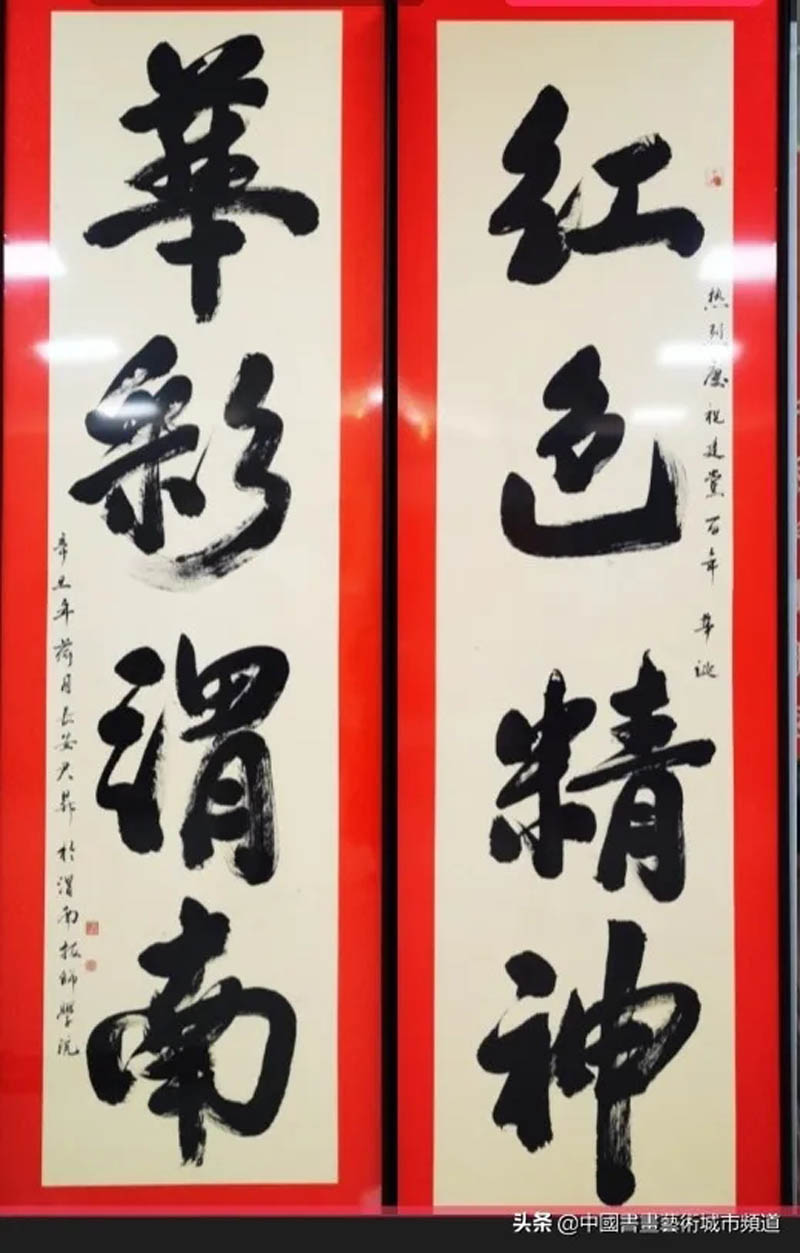 红色精神
热烈庆祝建党百年华诞
華彩渭南
辛丑年荷月长安大昇於渭南技师學院
头条 @中國書畫藝術城市頻道